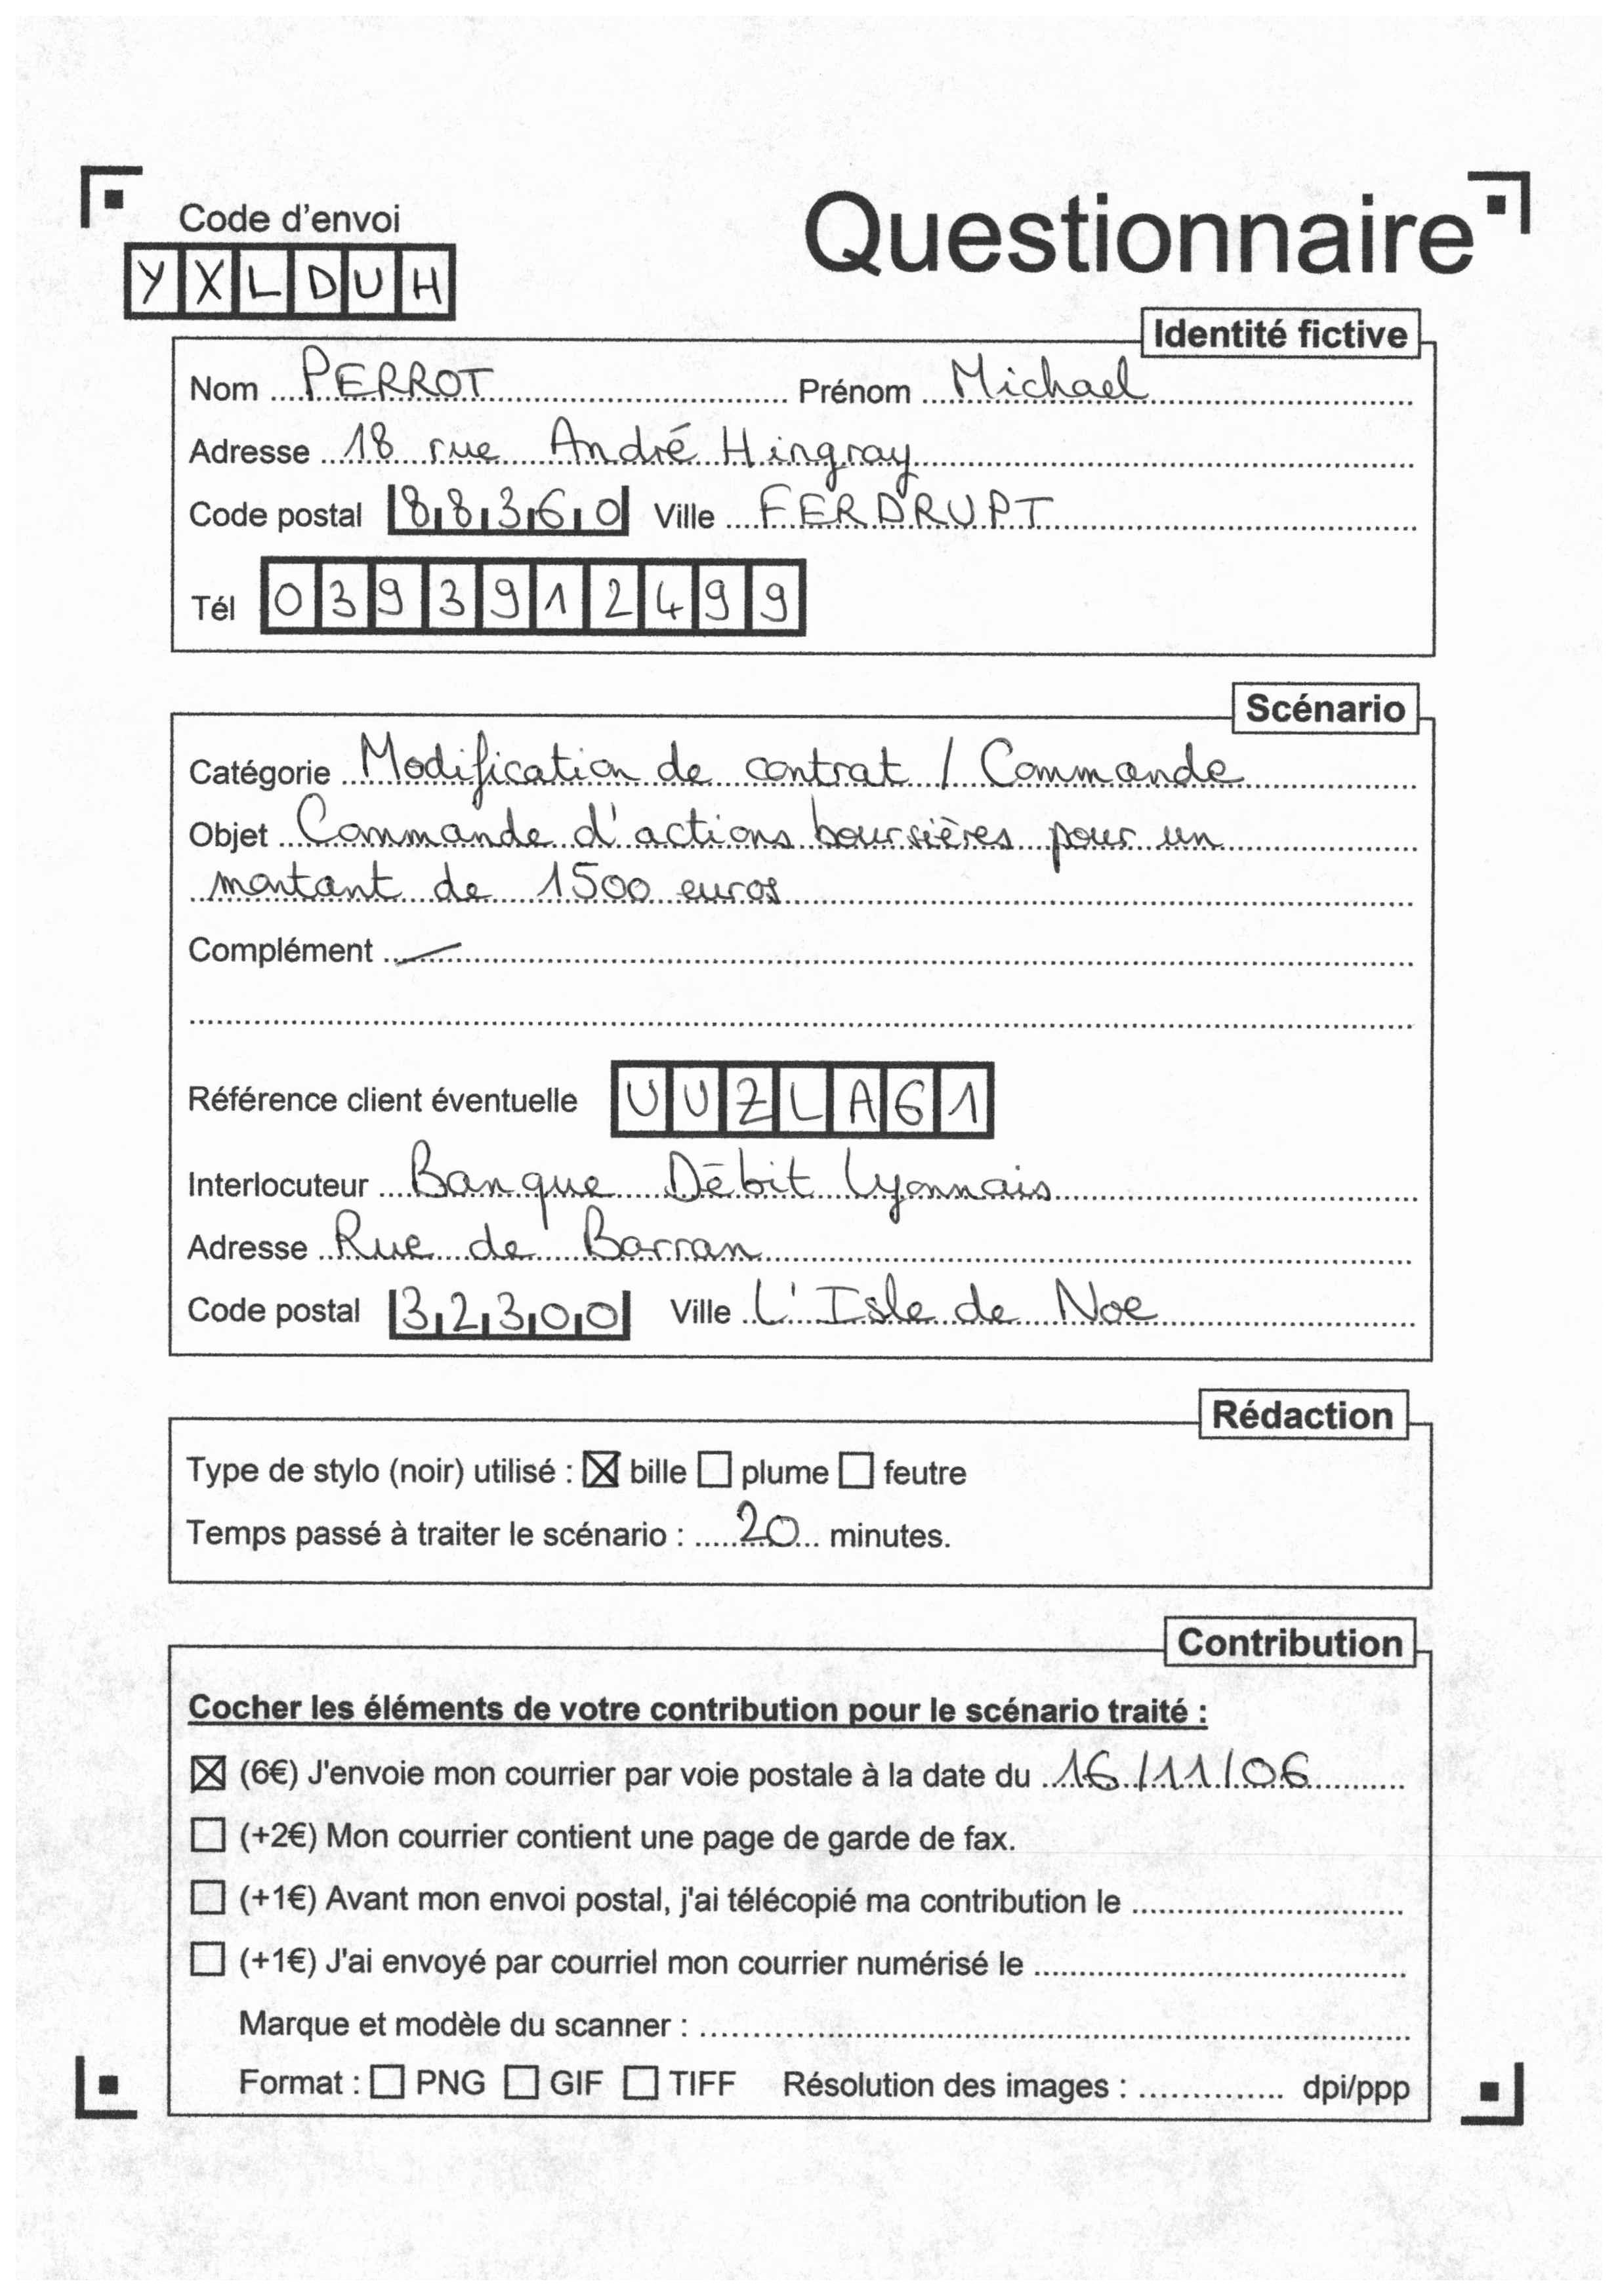 Questionnaire
Code d'envoi
YXLDUH
Identité fictive
Nom PERROT Prénom Michael
Adresse 18 rue André Hingray
Code postal 88360 Ville FERDRUPT
Tél 0393912499
Scénario
Catégorie Modification de contrat / Commande
Objet Commande d'actions boursières pour un
montant de 1500 euros
Complément —
Référence client éventuelle UUZLA61
Interlocuteur Banque Débit Lyonnais
Adresse Rue de Barran
Code postal 32300 Ville L'Isle de Noe
Rédaction
Type de stylo (noir) utilisé : ☒ bille ☐ plume ☐ feutre
Temps passé à traiter le scénario : 20 minutes.
Contribution
Cocher les éléments de votre contribution pour le scénario traité :
☒ (6€) J'envoie mon courrier par voie postale à la date du 16/11/06
☐ (+2€) Mon courrier contient une page de garde de fax.
☐ (+1€) Avant mon envoi postal, j'ai télécopié ma contribution le
☐ (+1€) J'ai envoyé par courriel mon courrier numérisé le
Marque et modèle du scanner :
Format : ☐ PNG ☐ GIF ☐ TIFF Résolution des images : dpi/ppp